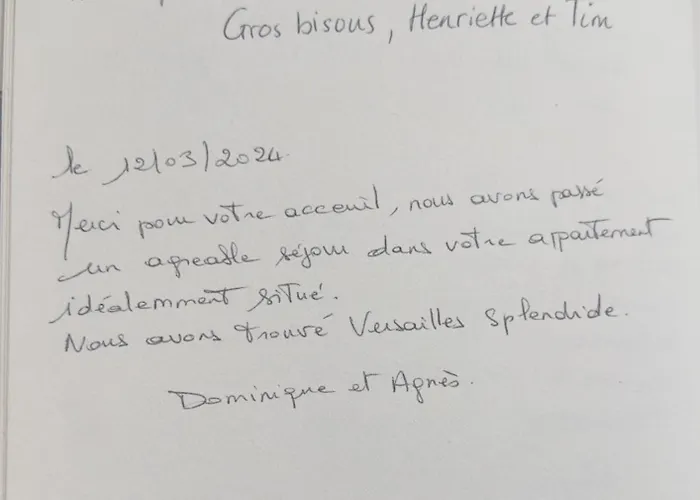 Gros bisous, Henriette et Tim
le 12/03/2024.
Merci pour votre acceuil, nous avons passé
un agreable séjour dans votre appartement
idéalemment situé.
Nous avons trouvé Versailles Splendide.
Dominique et Agnès.